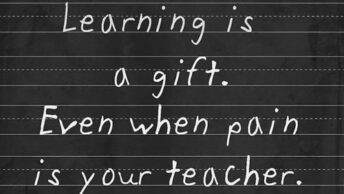 Learning is
a gift.
Even when pain
is your teacher.